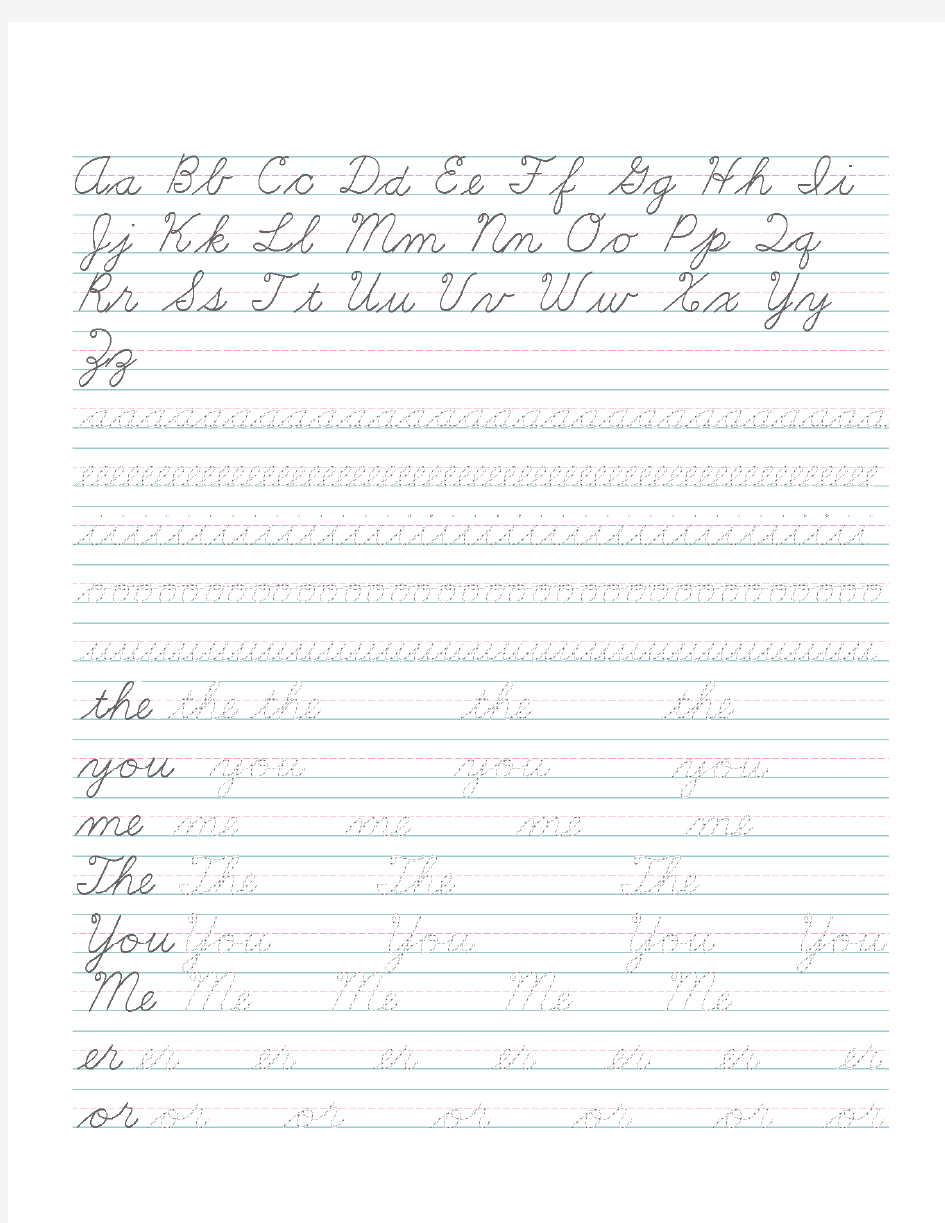 Aa Bb Cc Dd Ee Ff Gg Hh Ii
Jj Kk Ll Mm Nn Oo Pp Qq
Rr Ss Tt Uu Vv Ww Xx Yy
Zz
aaaaaaaaaaaaaaaaaaaaaaaaaaaa
eeeeeeeeeeeeeeeeeeeeeeeeeeeeeeeeeeeeee
iiiiiiiiiiiiiiiiiiiiiiiiiiiiiiiiiii
oooooooooooooooooooooooooooooooo
uuuuuuuuuuuuuuuuuuuuuuuuuuuu
the the the the the
you you you you
me me me me me
The The The The
You You You You You
Me Me Me Me Me
er er er er er er er er
or or or or or or or